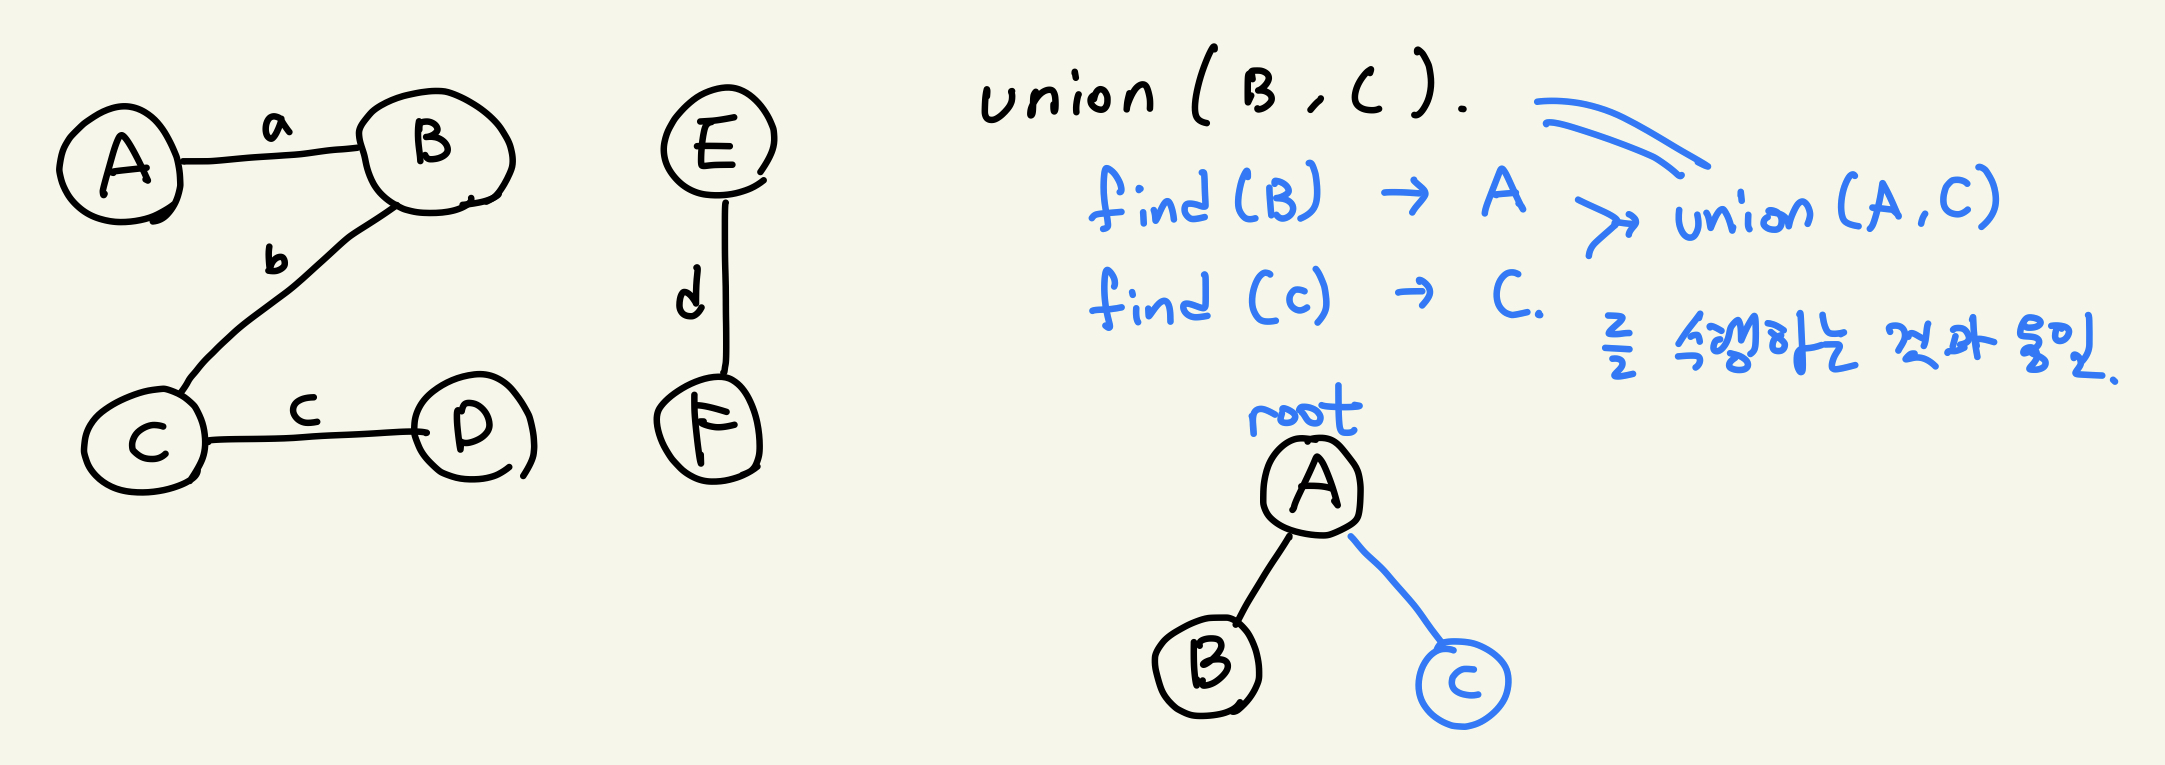 A a B
b
C c D
E
d
F
union (B, C).
find (B) → A
find (c) → C.
union (A, C)
를 수행하는 것과 동일.
root
A
B
C